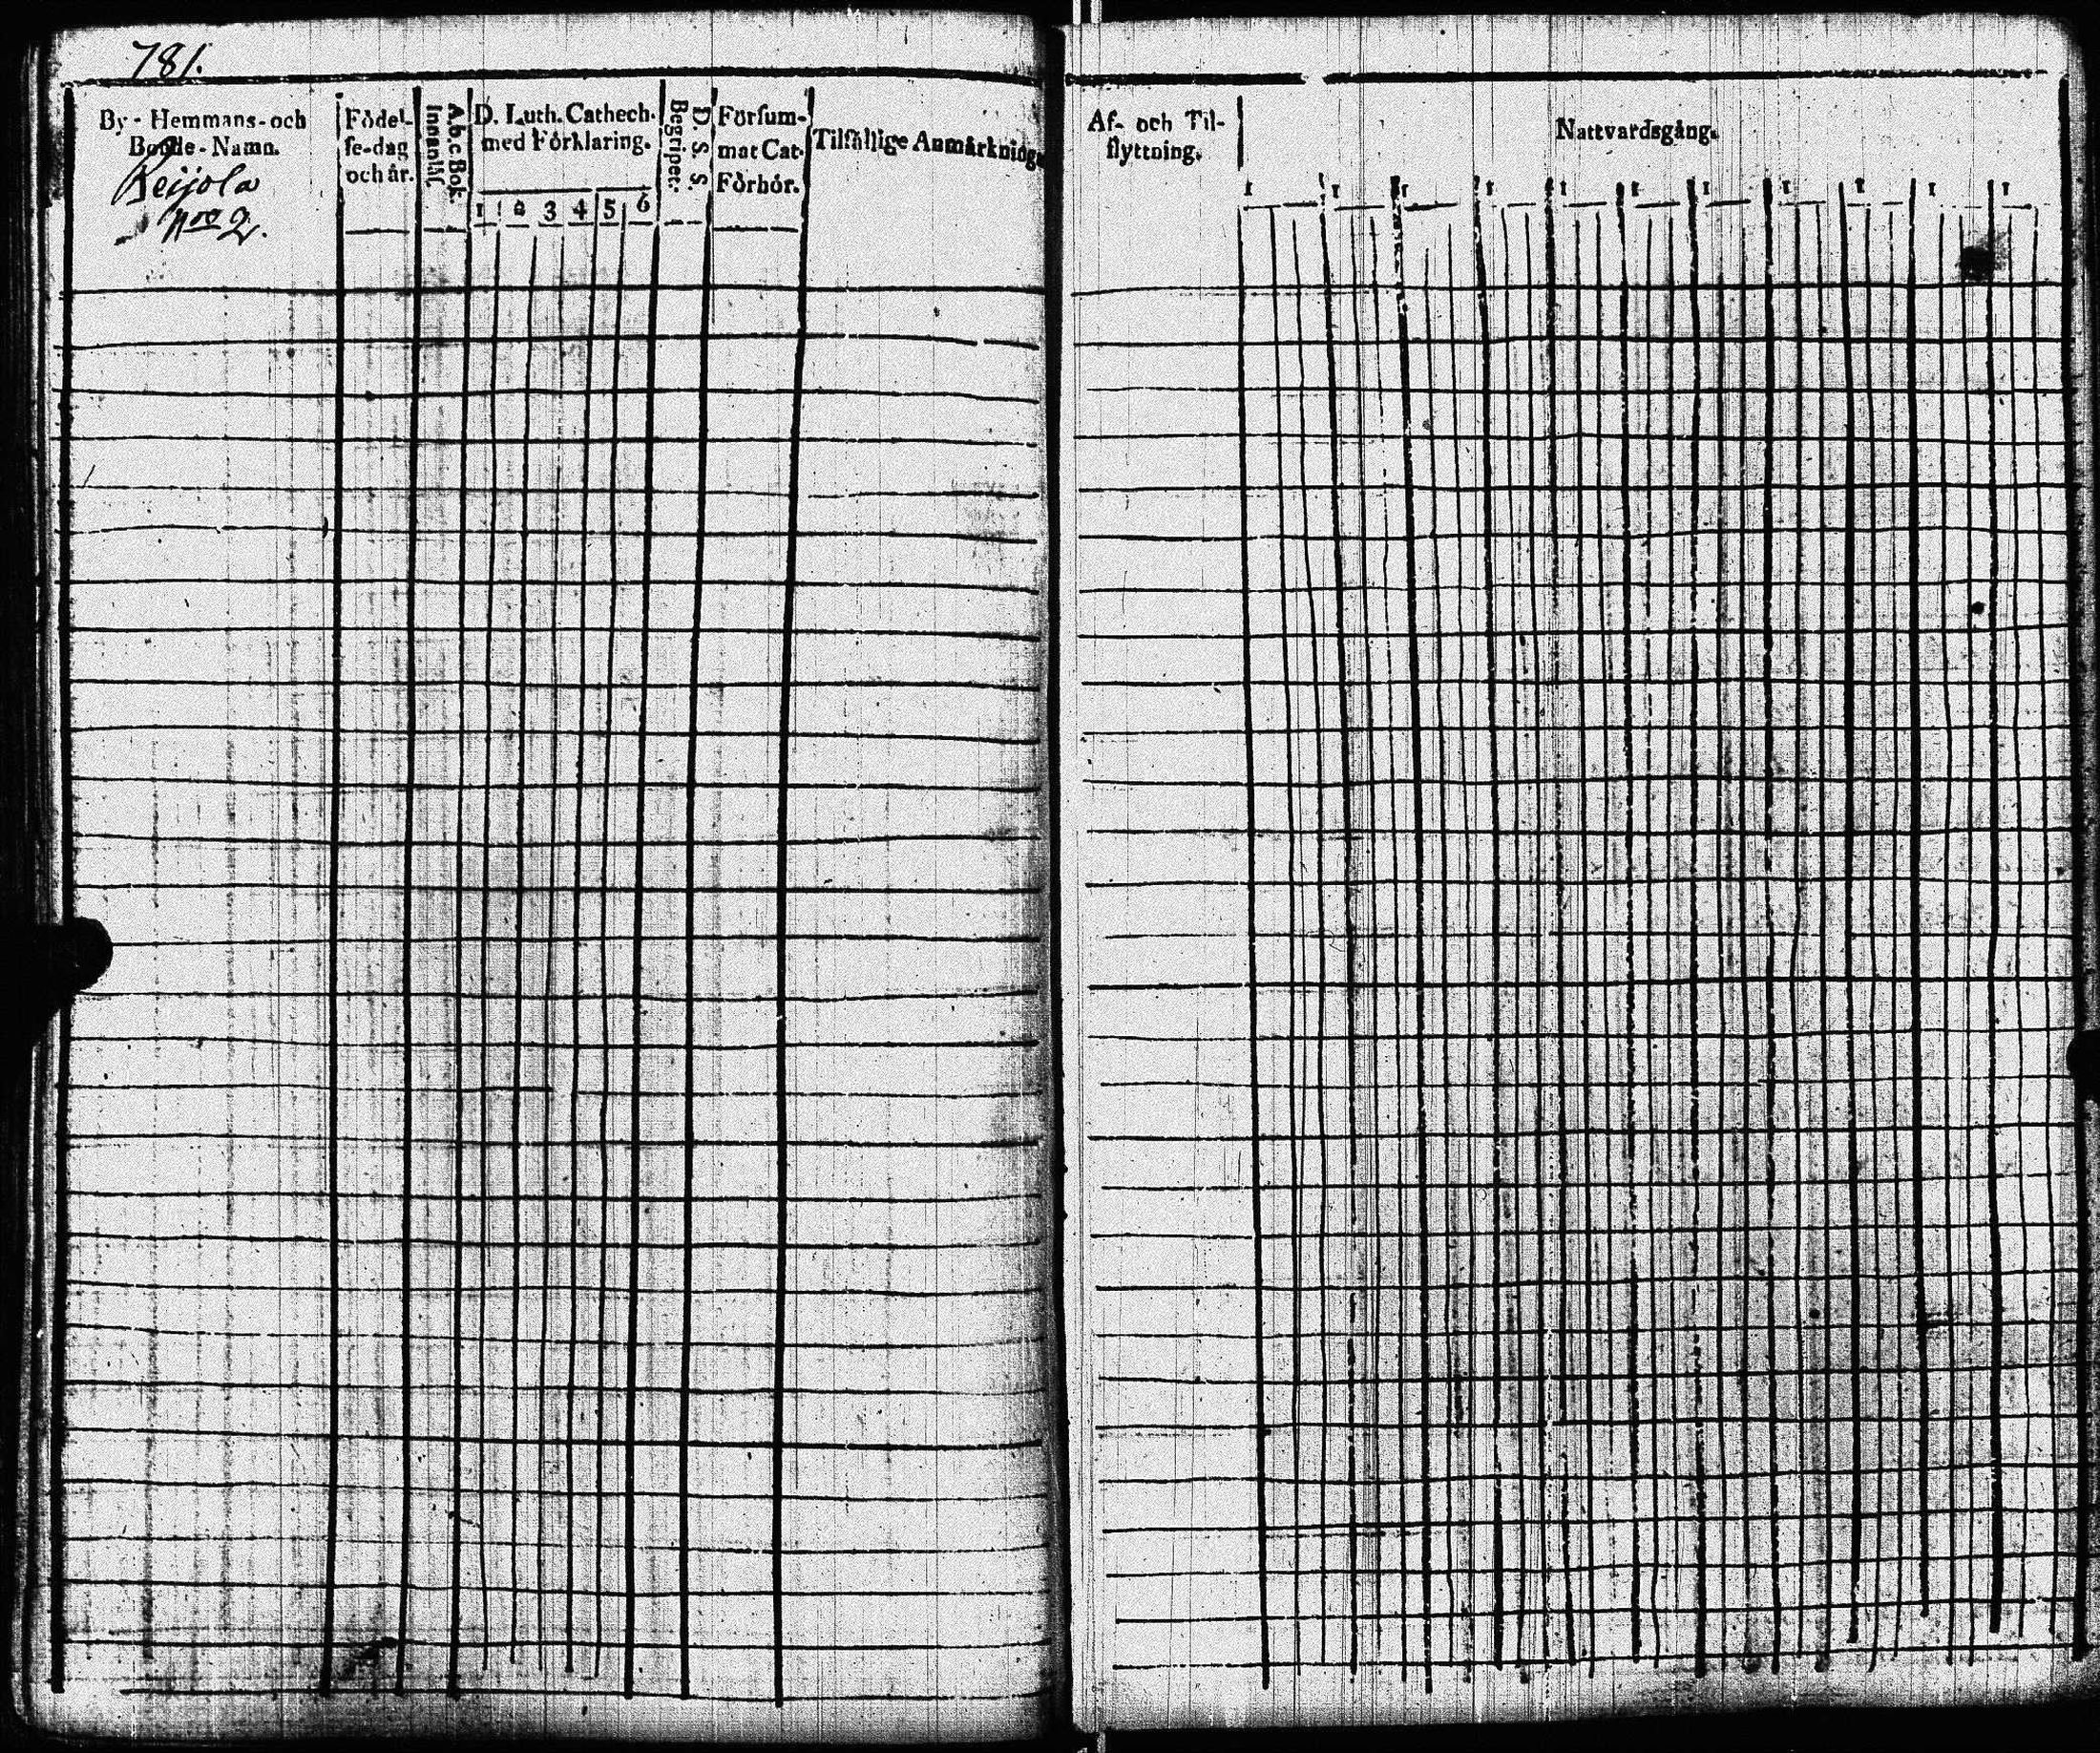 781.
By - Hemmans - och
Bonde - Namn.
Keijola
Nro 2.
Födel-
se-dag
och år.
A b c Bok.
Innanläs.
D. Luth. Cathech.
med Förklaring.
1 2 3 4 5 6
D. S. S.
Begripet.
Försum-
mat Cat.
Förhör.
Tilfällige Anmärkninga
Af- och Til-
flyttning.
Nattvardsgång.
1 1 1 1 1 1 1 1 1 1 1